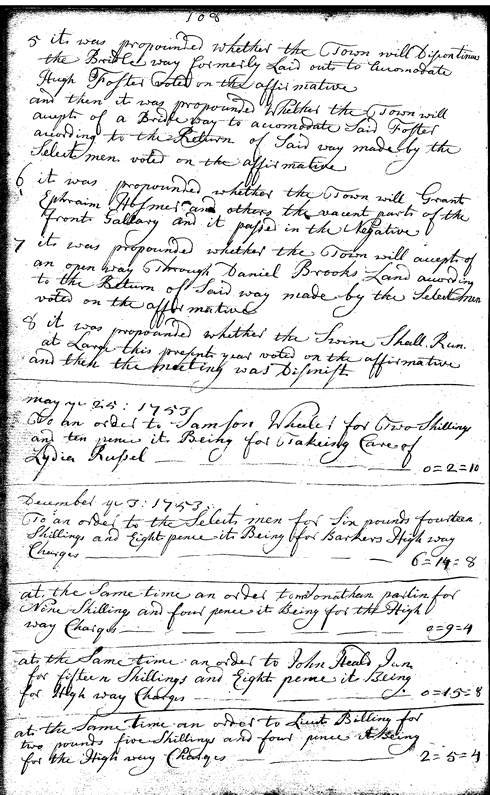 108
5 it was propounded whether the Town will Discontinue
the Bridle way formerly Laid out to Acomodate
Hugh Foster voted on the affirmative
and then it was propounded whether the Town will
accept of a Bridle way to acomodate Said Foster
acording to the Return of Said way made by the
Select men voted on the affirmative
6 it was propounded whether the Town will Grant
Ephraim Hosmer and others the vacent parts of the
front Gallary and it passed in the Negative
7 it was propounded whether the Town will accept of
an open way Through Daniel Brooks Land acording
to the Return of Said way made by the Select men
voted on the affirmative
8 it was propounded whether the Swine Shall Run
at Large this present year voted on the affirmative
and then the meeting was Dismist
may ye 25: 1753
To an order to Samson Wheeler for Two Shillings
and ten pence it Being for Takeing Care of
Lydia Russel 0=2=10
December ye 3: 1753
To an order to the Select men for Six pounds fourteen
Shillings and Eight pence it Being for Barkers High way
Charges 6=14=8
at the Same time an order to Jonathan parlin for
Nine Shilling and four pence it Being for the High
way Charges 0=9=4
at the Same time an order to John Heald Jun
for fifteen Shillings and Eight pence it Being
for High way Charges 0=15=8
at the Same time an order to Lieut Billing for
two pounds five Shillings and four pence it Being
for the High way Charges 2=5=4